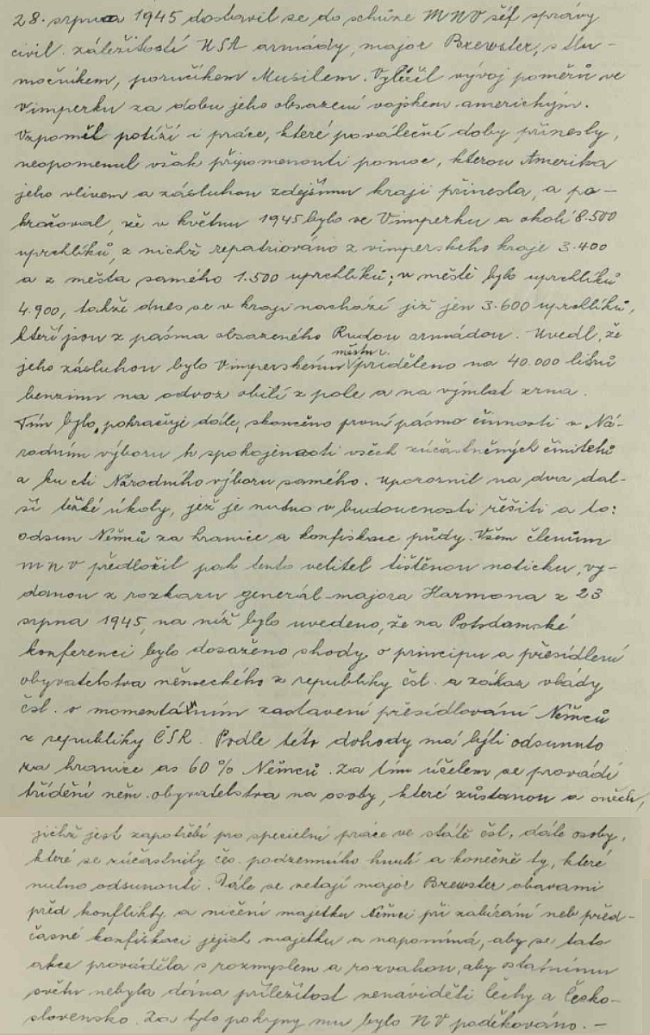 28. srpna 1945 dostavil se do schůze MNV šéf správy
civil. záležitostí USA armády, major Brewster, s tlu-
močníkem, poručíkem Musilem. Vylíčil vývoj poměrů ve
Vimperku za dobu jeho obsazení vojskem americkým.
Vzpoměl potíží i práce, které poválečné doby přinesly,
neopomenul však připomenouti pomoc, kterou Amerika
jeho vlivem a zásluhou zdejšímu kraji přinesla, a po-
kračoval, že v květnu 1945 bylo ve Vimperku a okolí 8.500
uprchlíků, z nichž repatriováno z vimperského kraje 3.400
a z města samého 1.500 uprchlíků; v městě bylo uprchlíků
4.900, takže dnes se v kraji nachází již jen 3.600 uprchlíků,
kteří jsou z pásma obsazeného Rudou armádou. Uvedl, že
jeho zásluhou bylo Vimperskému městu přiděleno na 40.000 litrů
benzinu na odvoz obilí z pole a na výmlat zrna.
Tím bylo, pokračuje dále, skončeno první pásmo činnosti v Ná-
rodním výboru k spokojenosti všech zúčastněných činitelů
a ku cti Národního výboru samého. Upozornil na dva dal-
ší těžké úkoly, jež je nutno v budoucnosti řešiti a to:
odsun Němců za hranice a konfiskace půdy. Všem členům
MNV předložil pak tento velitel tištěnou noticku, vy-
danou z rozkazu generál-majora Harmona z 23
srpna 1945, na níž bylo uvedeno, že na Potsdamské
konferenci bylo dosaženo shody o principu a přesídlení
obyvatelstva německého z republiky čsl. a zákaz vlády
čsl. o momentálním zastavení přesídlování Němců
z republiky ČSR. Podle této dohody má býti odsunuto
za hranice as 60% Němců. Za tím účelem se provádí
třídění něm. obyvatelstva na osoby, které zůstanou a oněch,
jichž jest zapotřebí pro specielní práce ve státě čsl., dále osoby,
které se zúčastnily čs. podzemního hnutí a konečně ty, které
nutno odsunouti. Dále se netají major Brewster obavami
před konflikty a ničení majetku Němci při zabírání neb před-
časné konfiskaci jejich majetku a napomíná, aby se tato
akce prováděla s rozmyslem a rozvahou, aby ostatnímu
světu nebyla dána příležitost nenáviděti Čechy a Česko-
slovensko. Za tyto pokyny mu bylo NV poděkováno. —